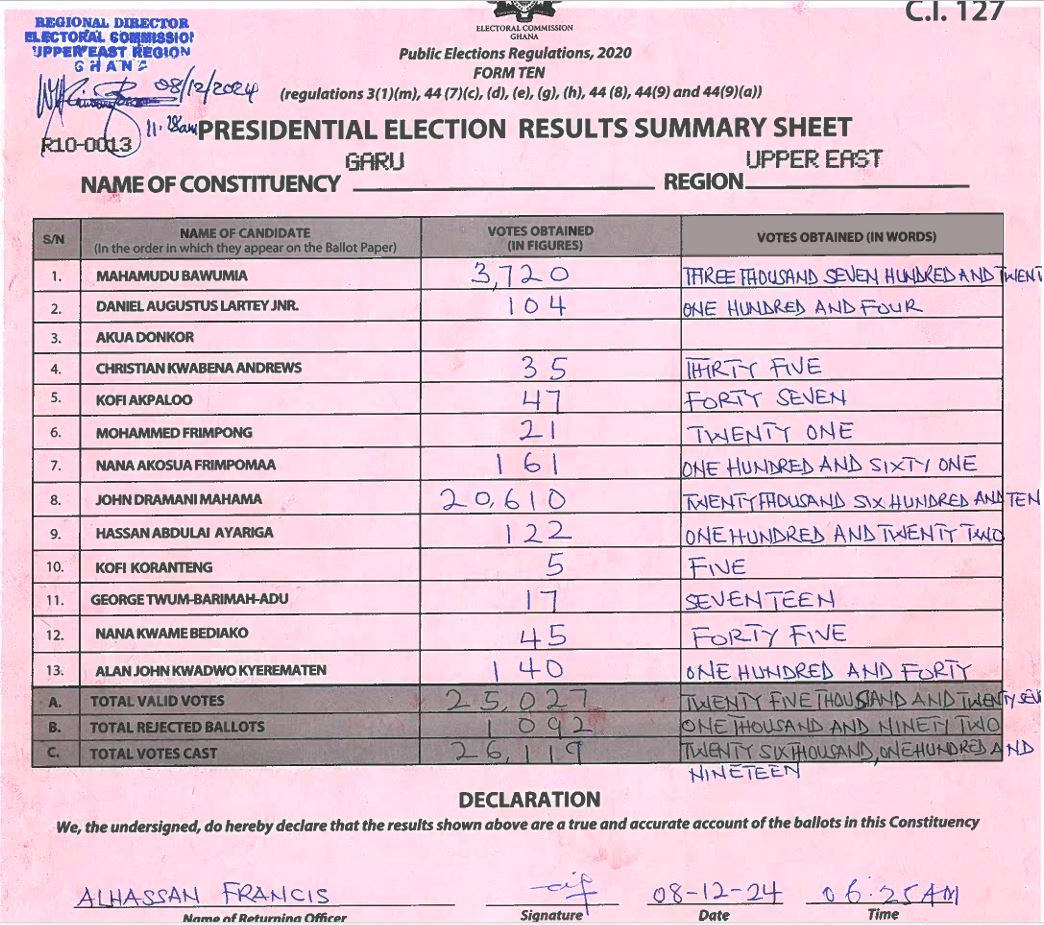 C.I. 127
REGIONAL DIRECTOR
ELECTORAL COMMISSION
UPPER EAST REGION
GHANA
08/12/2024
11:28am
R10-0013
ELECTORAL COMMISSION
GHANA
Public Elections Regulations, 2020
FORM TEN
(regulations 3(1)(m), 44 (7)(c), (d), (e), (g), (h), 44 (8), 44(9) and 44(9)(a))
PRESIDENTIAL ELECTION RESULTS SUMMARY SHEET
NAME OF CONSTITUENCY GARU REGION UPPER EAST
S/N NAME OF CANDIDATE (In the order in which they appear on the Ballot Paper) VOTES OBTAINED (IN FIGURES) VOTES OBTAINED (IN WORDS)
1. MAHAMUDU BAWUMIA 3,720 THREE THOUSAND SEVEN HUNDRED AND TWENT
2. DANIEL AUGUSTUS LARTEY JNR. 104 ONE HUNDRED AND FOUR
3. AKUA DONKOR
4. CHRISTIAN KWABENA ANDREWS 35 THIRTY FIVE
5. KOFI AKPALOO 47 FORTY SEVEN
6. MOHAMMED FRIMPONG 21 TWENTY ONE
7. NANA AKOSUA FRIMPOMAA 161 ONE HUNDRED AND SIXTY ONE
8. JOHN DRAMANI MAHAMA 20,610 TWENTY THOUSAND SIX HUNDRED AND TEN
9. HASSAN ABDULAI AYARIGA 122 ONE HUNDRED AND TWENTY TWO
10. KOFI KORANTENG 5 FIVE
11. GEORGE TWUM-BARIMAH-ADU 17 SEVENTEEN
12. NANA KWAME BEDIAKO 45 FORTY FIVE
13. ALAN JOHN KWADWO KYEREMATEN 140 ONE HUNDRED AND FORTY
A. TOTAL VALID VOTES 25,027 TWENTY FIVE THOUSAND AND TWENTY SEV
B. TOTAL REJECTED BALLOTS 1092 ONE THOUSAND AND NINETY TWO
C. TOTAL VOTES CAST 26,119 TWENTY SIX THOUSAND, ONE HUNDRED AND
NINETEEN
DECLARATION
We, the undersigned, do hereby declare that the results shown above are a true and accurate account of the ballots in this Constituency
ALHASSAN FRANCIS 08-12-24 06:25AM
Name of Returning Officer Signature Date Time